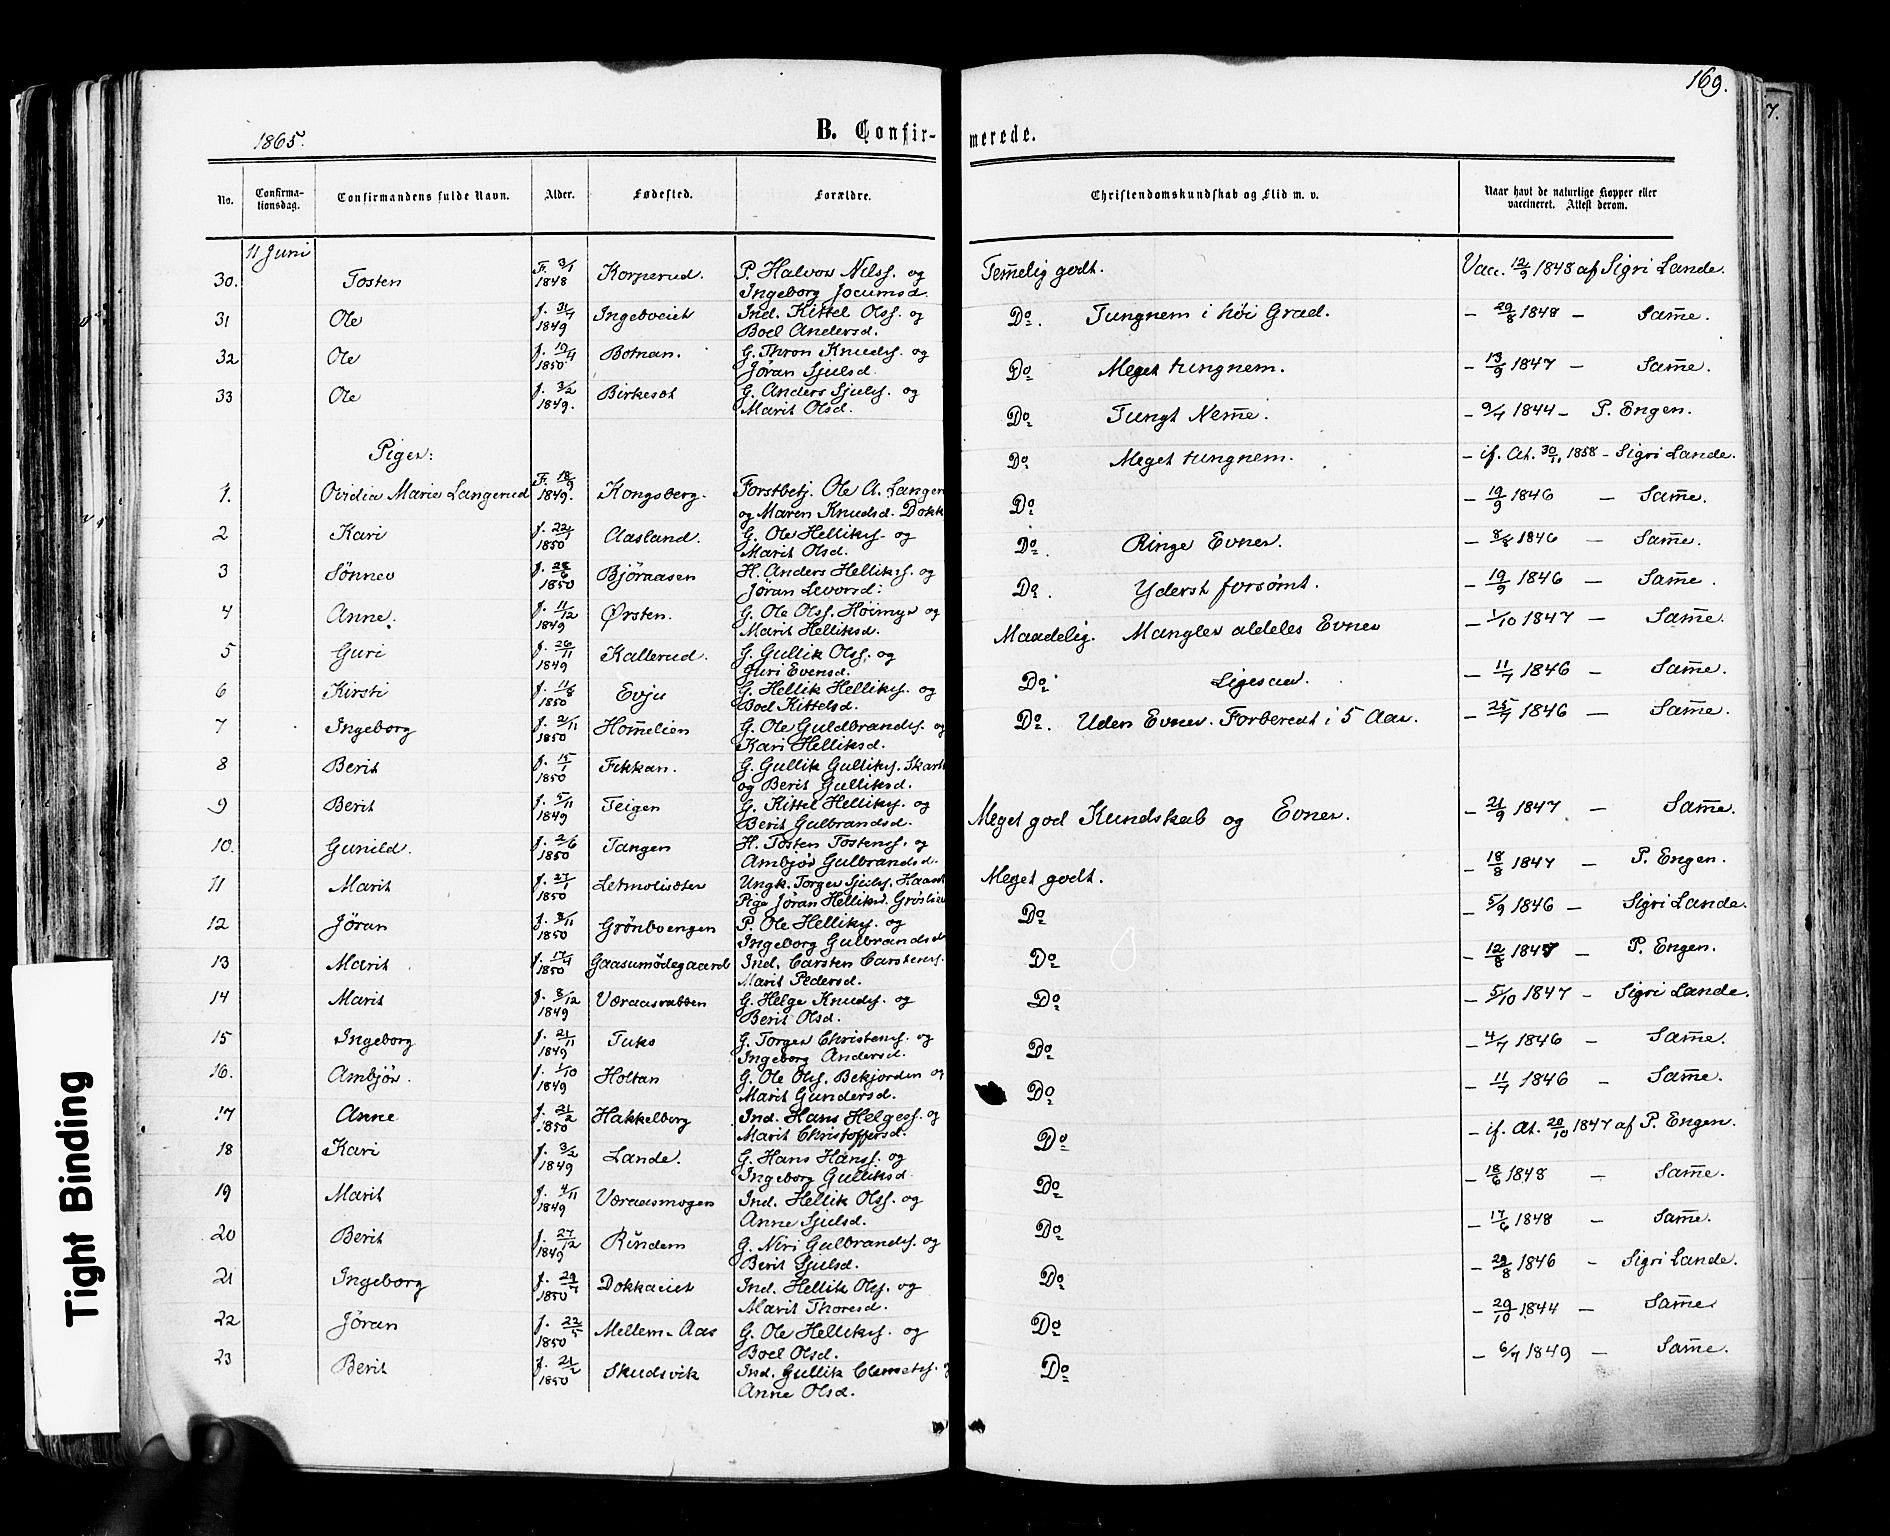 169.
7.
1865.
B. Confir-
merede.
No.
Confirma-
tionsdag.
Confirmandens fulde Navn.
Alder.
Fødested.
Forældre.
Christendomskundskab og Flid m. v.
Naar havt de naturlige Kopper eller
vaccineret. Attest derom.
11 Juni
30. Tosten F. 3/1 1848 Korperud. P. Halvor Nilss. og
Ingeborg Jocumsd.
31 Ole f. 31/7 1849 Ingebveiet Ind. Kittel Olss. og
Boel Andersd.
32 Ole f. 19/4 1850 Botnan. G. Thron Knuds. og
Jøran Sjulsd.
33 Ole f. 3/2 1849. Birkeset G. Anders Sjuls. og
Marit Olsd.
Piger:
1. Ovidia Marie Langerud F. 18/9 1849. Kongsberg. Forstbetj. Ole A. Langer
og Maren Knudsd. Dokk
2 Kari f. 22/1 1850 Aasland. G. Ole Helliks. og
Marit Olsd.
3 Sønnev f. 28/6 1850 Bjøraasen H. Anders Helliks. og
Jøran Levorsd:
4 Anne. f. 11/12 1849 Ørsten. G. Ole Olss. Høimyr og
Marit Helliksd.
5 Guri f. 26/11 1849 Kallerud. G. Gullik Olss. og
Guri Evensd.
6 Kirsti f. 11/8 1850 Evju G. Hellik Helliks. og
Boel Kittelsd.
7 Ingeborg f. 2/11 1850 Hom̅elien G. Ole Guldbrands. og
Kari Helliksd.
8 Berit f. 15/1 1850 Fekkan. G. Gullik Gulliks. Skart
og Berit Gulliksd.
9 Berit f. 5/11 1849 Teigen G. Kittel Helliks. og
Berit Gulbrandsd.
10. Gunild. f. 2/6 1850 Tangen H. Tosten Tostens. og
Ambjør Gulbrandsd.
11 Marit f. 27/1 1850 Letmolisæter Ungk. Torger Sjuls. Haand
Pige Jøran Helliksd. Grøslien
12 Jøran f. 3/11 1850 Grønbvengen P. Ole Helliks. og
Ingeborg Gulbrandsd
13 Marit f. 17/4 1850 Gaasumødegaard Ind. Carsten Carstens.
Marit Pedersd.
14 Marit f. 8/12 1849 Væraasrabben G. Helge Knuds. og
Berit Olsd.
15 Ingeborg f. 21/11 1849 Fuks G. Torger Christens. og
Ingeborg Andersd.
16. Ambjør. f. 1/10 1849 Holtan G. Ole Ols. Bekjorden og
Marit Gundersd.
17 Anne f. 21/2 1850 Hakkelberg Ind. Hans Helgess. og
Marit Christoffersd.
18 Kari f. 3/2 1849 Lande. G. Hans Hanss. og
Ingeborg Gulliksd.
19 Marit f. 4/11 1849 Væraasmogen Ind. Hellik Olss. og
Anne Sjulsd.
20 Berit f. 27/12 1849 Rundem G. Niri Gulbrands. og
Berit Sjulsd.
21 Ingeborg f. 29/7 1850 Dokkaeiet Ind. Hellik Olss. og
Marit Thoresd.
22 Jøran f. 22/5 1850 Mellem-Aas G. Ole Helliks. og
Boel Olsd.
23 Berit f. 21/2 1850 Skudsvik Ind. Gullik Clemets.
Anne Olsd.
Tem̅elig godt. Vacc. 12/9 1848 af Sigri Lande.
Do. Tungnem i høi Grad. - 29/8 1848 - Sam̅e.
Do Meget tungnem. - 13/9 1847 - Sam̅e.
Do Tungt Nem̅e. - 9/7 1844 - P. Engen.
Do Meget tungnem. - if. At. 30/11 1858 - Sigri Lande.
Do - 19/9 1846 - Sam̅e.
Do. Ringe Evner. - 8/8 1846 - Sam̅e.
Do. Yderst forsømt. - 19/9 1846 - Sam̅e.
Maadelig. Mangler aldeles Evner - 1/10 1847 - Sam̅e.
Do Ligesaa. - 11/7 1846 - Sam̅e.
Do. Uden Evner. Forberedt i 5 Aar. - 25/7 1846 - Sam̅e.
Meget god Kundskab og Evner. - 21/9 1847 - Sam̅e.
Meget godt. - 18/8 1847 - P. Engen.
Do - 5/9 1846 - Sigri Lande.
Do - 12/8 1847 - P. Engen.
Do - 5/10 1847 - Sigri Lande.
Do - 4/7 1846 - Sam̅e.
Do - 11/7 1846 - Sam̅e.
Do - if. At. 20/10 1847 af P. Engen.
Do - 18/6 1848 - Sam̅e.
Do - 17/6 1848 - Sam̅e.
Do - 29/8 1846 - Sigri Lande.
Do - 29/10 1844 - Sam̅e.
Do - 6/7 1849 - Sam̅e.
Tight Binding